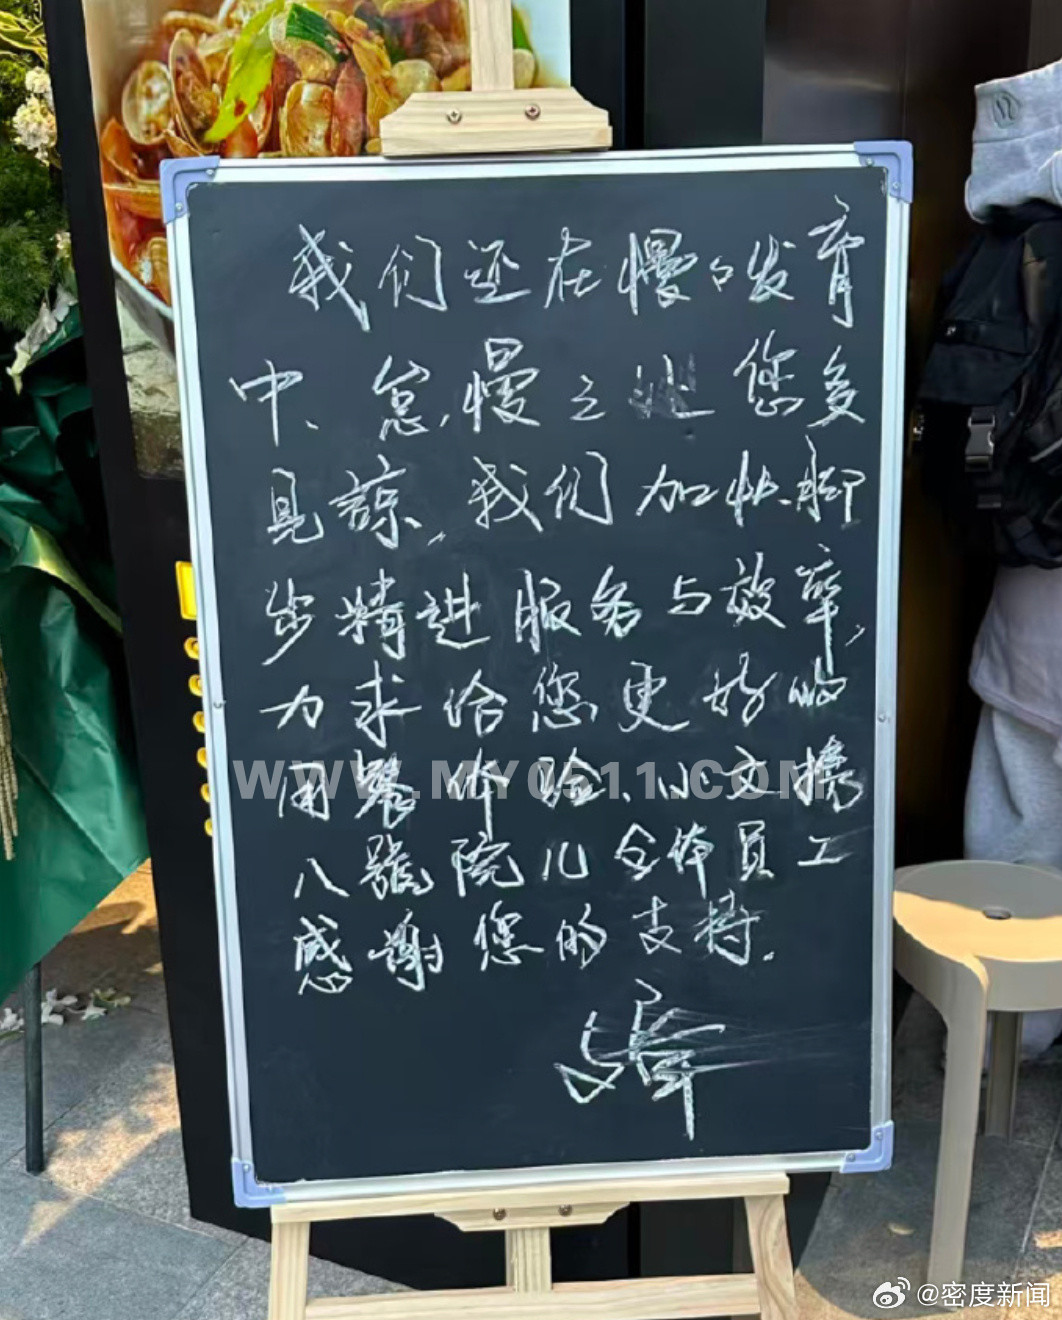 我们还在慢々发育
中、怠慢之处您多
見諒,我们加快脚
步精进服务与效率,
力求给您更好的
用餐体验、小文携
八號院儿全体員工
感谢您的支持.
WWW.MY0511.COM
@密度新闻